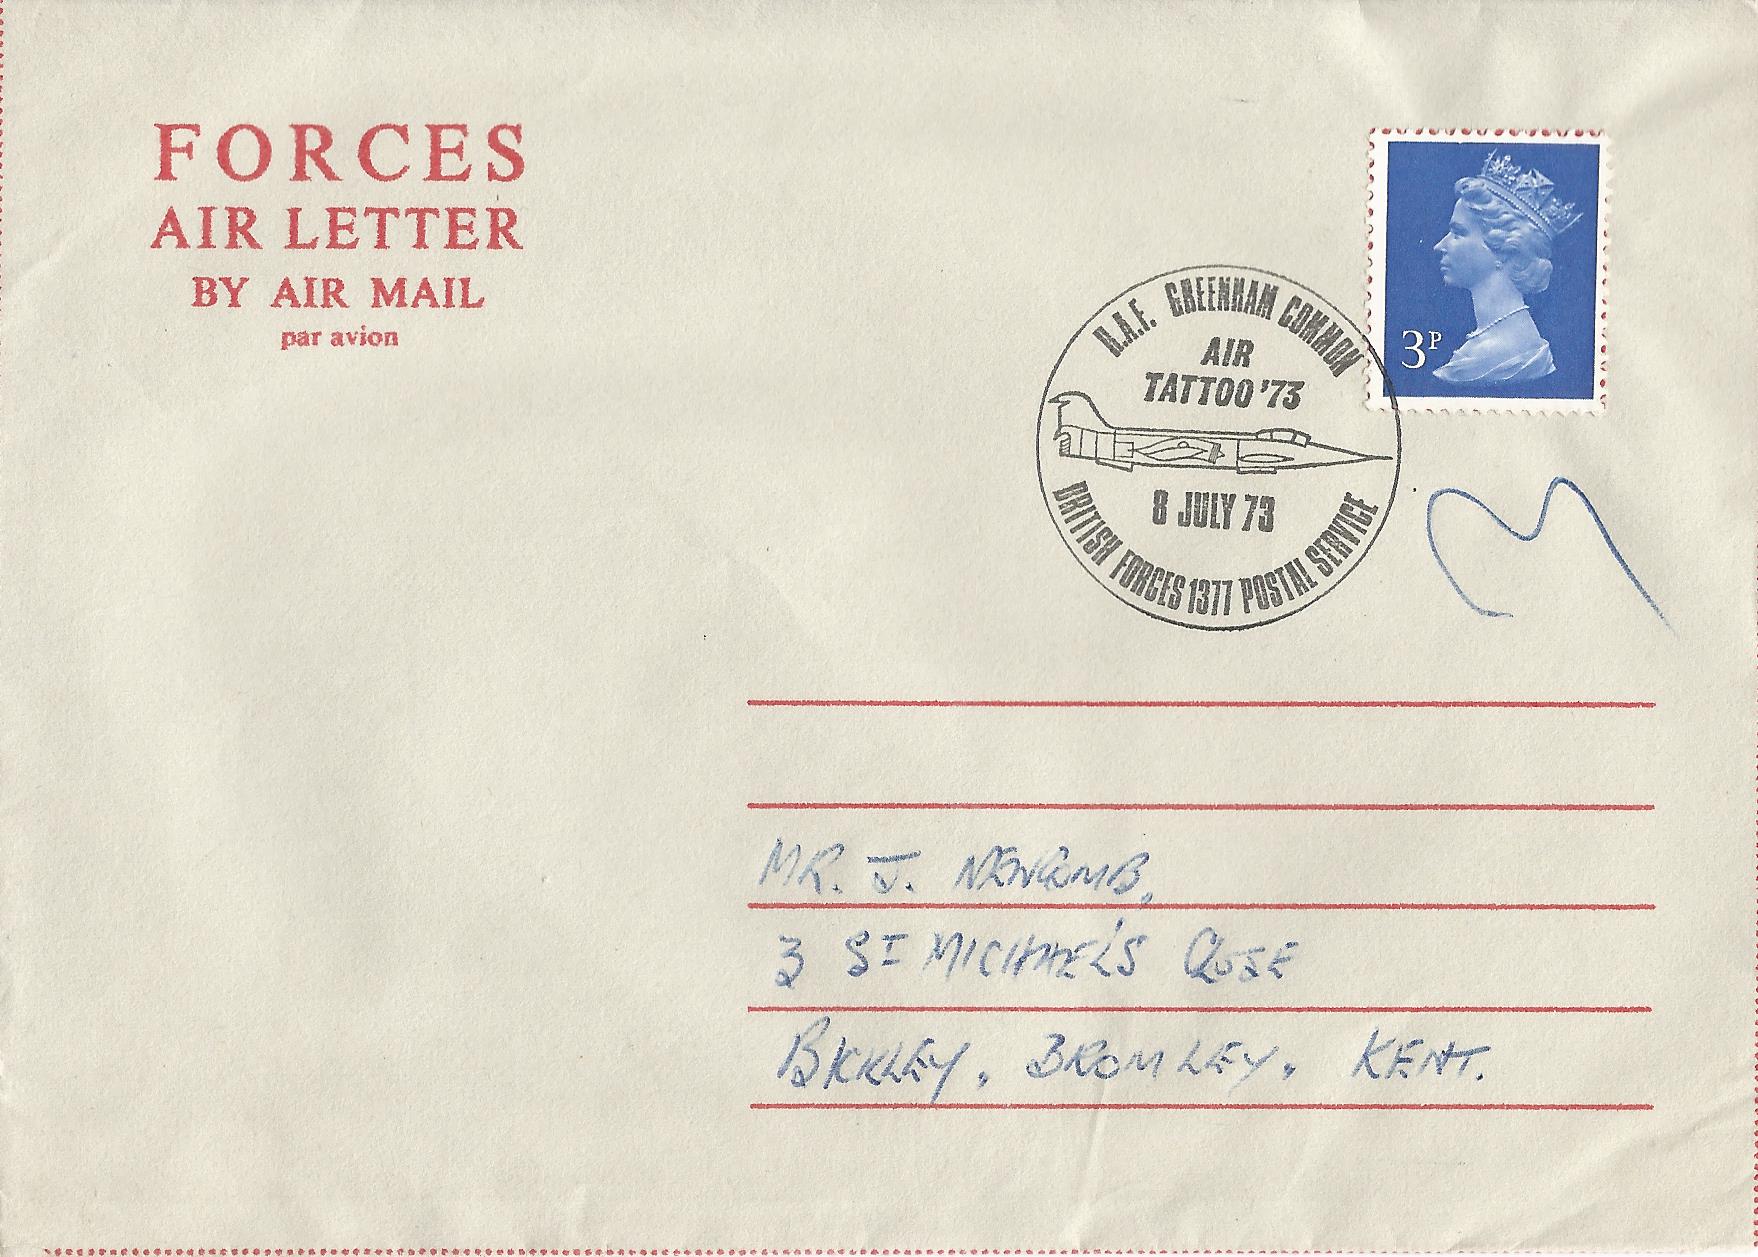 FORCES
AIR LETTER
BY AIR MAIL
par avion
3P
R.A.F. GREENHAM COMMON
AIR
TATTOO '73
8 JULY 73
BRITISH FORCES 1377 POSTAL SERVICE
MR. J. NEWCOMB,
3 ST MICHAEL'S CLOSE
BICKLEY, BROMLEY, KENT.